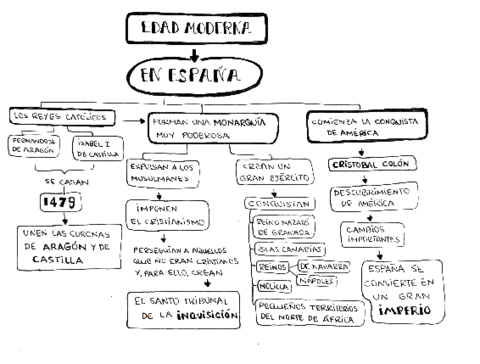 EDAD MODERNA
EN ESPAÑA
LOS REYES CATÓLICOS
FERNANDO II
DE ARAGÓN
ISABEL I
DE CASTILLA
SE CASAN
1479
UNEN LAS CORONAS
DE ARAGÓN Y DE
CASTILLA
FORMAN UNA MONARQUÍA
MUY PODEROSA
EXPULSAN A LOS
MUSULMANES
IMPONEN
EL CRISTIANISMO
PERSEGUÍAN A AQUELLOS
QUE NO ERAN CRISTIANOS
Y, PARA ELLO, CREAN
EL SANTO TRIBUNAL
DE LA INQUISICIÓN
CREAN UN
GRAN EJÉRCITO
CONQUISTAN
REINO NAZARÍ
DE GRANADA
ISLAS CANARIAS
REINOS
DE NAVARRA
NÁPOLES
MELILLA
PEQUEÑOS TERRITORIOS
DEL NORTE DE ÁFRICA
COMIENZA LA CONQUISTA
DE AMÉRICA
CRISTOBAL COLÓN
DESCUBRIMIENTO
DE AMÉRICA
CAMBIOS
IMPORTANTES
ESPAÑA SE
CONVIERTE EN
UN GRAN
IMPERIO